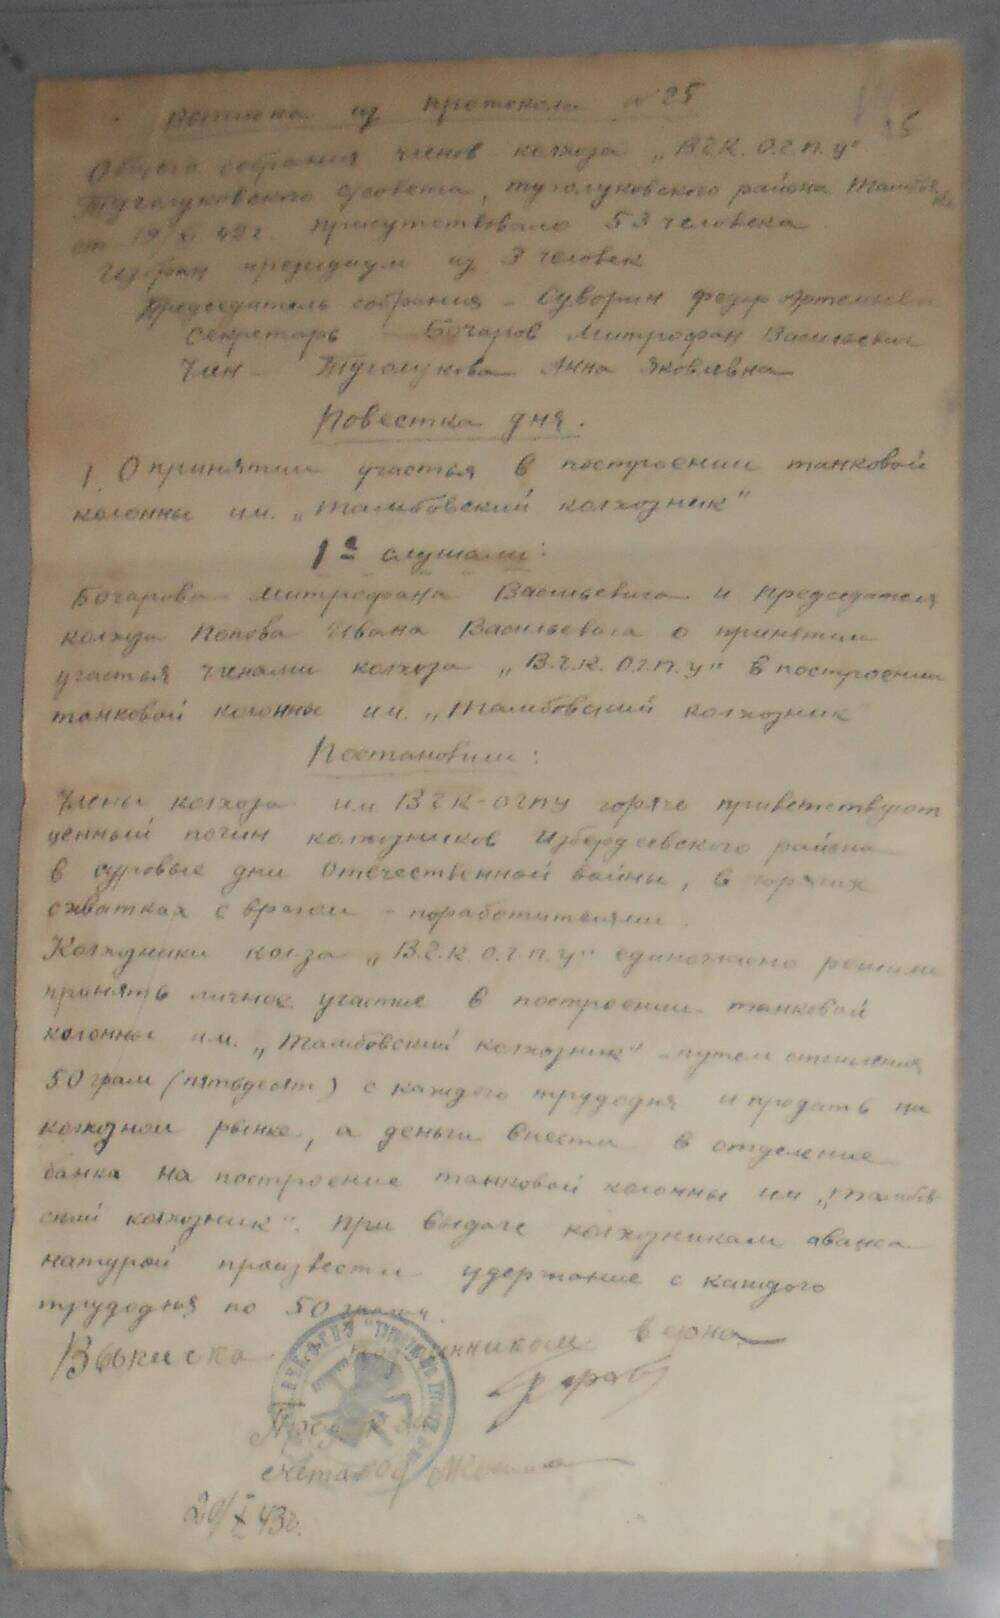 Выписка из протокола № 25
15
Общего собрания членов колхоза „ВЧК. О.Г.П.У"
Туголуковского с/совета, Туголуковского района Тамбов
от 19/XI 42 г. присутствовало 53 человека
Избран президиум из 3 человек
Председатель собрания - Суворин Федор Артемьевич
Секретарь - Бочаров Митрофан Васильевич
Член - Туголукова Анна Яковлевна
Повестка дня.
1. О принятии участья в построении танковой
колонны им. „Тамбовский колхозник"
1е слушали:
Бочарова Митрофана Васильевича и Председателя
колхоза Попова Ивана Васильевича о принятии
участья членами колхоза „В.Ч.К. О.Г.П.У" в построении
танковой колонны им. „Тамбовский колхозник
Постановили:
Члены колхоза им ВЧК-ОГПУ горяче приветствуют
ценный почин колхозников Избердеевского района
в суровые дни Отечественной войны, в горячих
схватках с врагом - поработителями.
Колхозники колхоза „В.Ч.К. О.Г.П.У" единогласно решили
принять личное участие в построении танковой
колонны им. „Тамбовский колхозник" - путем отчисления
50 грам (пятьдесят) с каждого трудодня и продать на
колхозном рынке, а деньги внести в отделение
банка на построение танковой колонны им „Тамбов
ский колхозник". При выдаче колхозникам аванса
натурой произвести удержание с каждого
трудодня по 50 грамм.
Выписка с подлинником верна
20/X 43г.